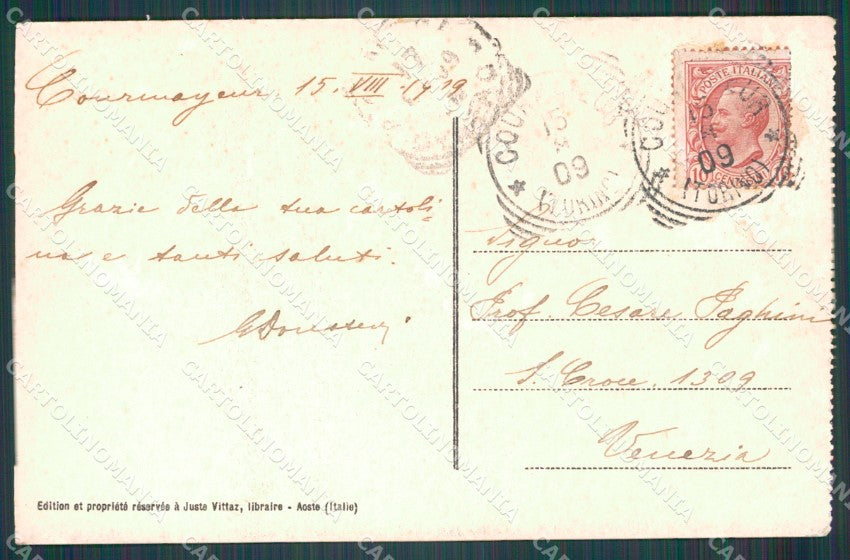 Courmayeur 15. VIII. 1909
Grazie della tua cartoli-
na e tanti saluti.
Signor
Prof. Cesare Paghini
S. Croce. 1309
Venezia
POSTE ITALIANE
10
COU
15
09
(TORINO)
COU
09
(TORINO)
Edition et propriété réservée à Juste Vittaz, libraire - Aoste (Italie)
CARTOLINOMANIA